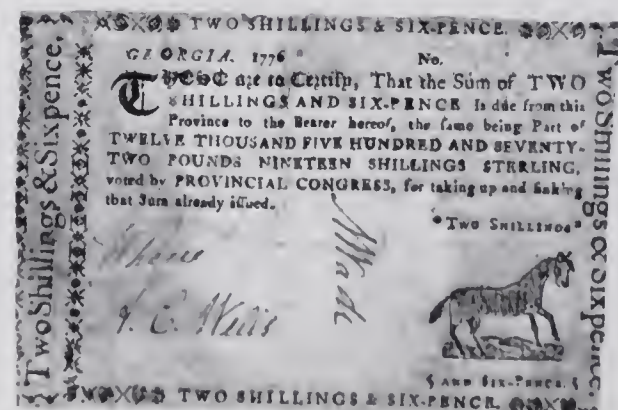 TWO SHILLINGS & SIX-PENCE.
Two Shillings & Sixpence.
GEORGIA. 1776 No.
THESE are to Certify, That the Sum of TWO
SHILLINGS AND SIX-PENCE Is due from this
Province to the Bearer hereof, the same being Part of
TWELVE THOUSAND FIVE HUNDRED AND SEVENTY-
TWO POUNDS NINETEEN SHILLINGS STERLING,
voted by PROVINCIAL CONGRESS, for taking up and sinking
that Sum already issued.
TWO SHILLINGS
Wade
AND SIX-PENCE.
Two Shillings & Sixpence.
TWO SHILLINGS & SIX-PENCE.